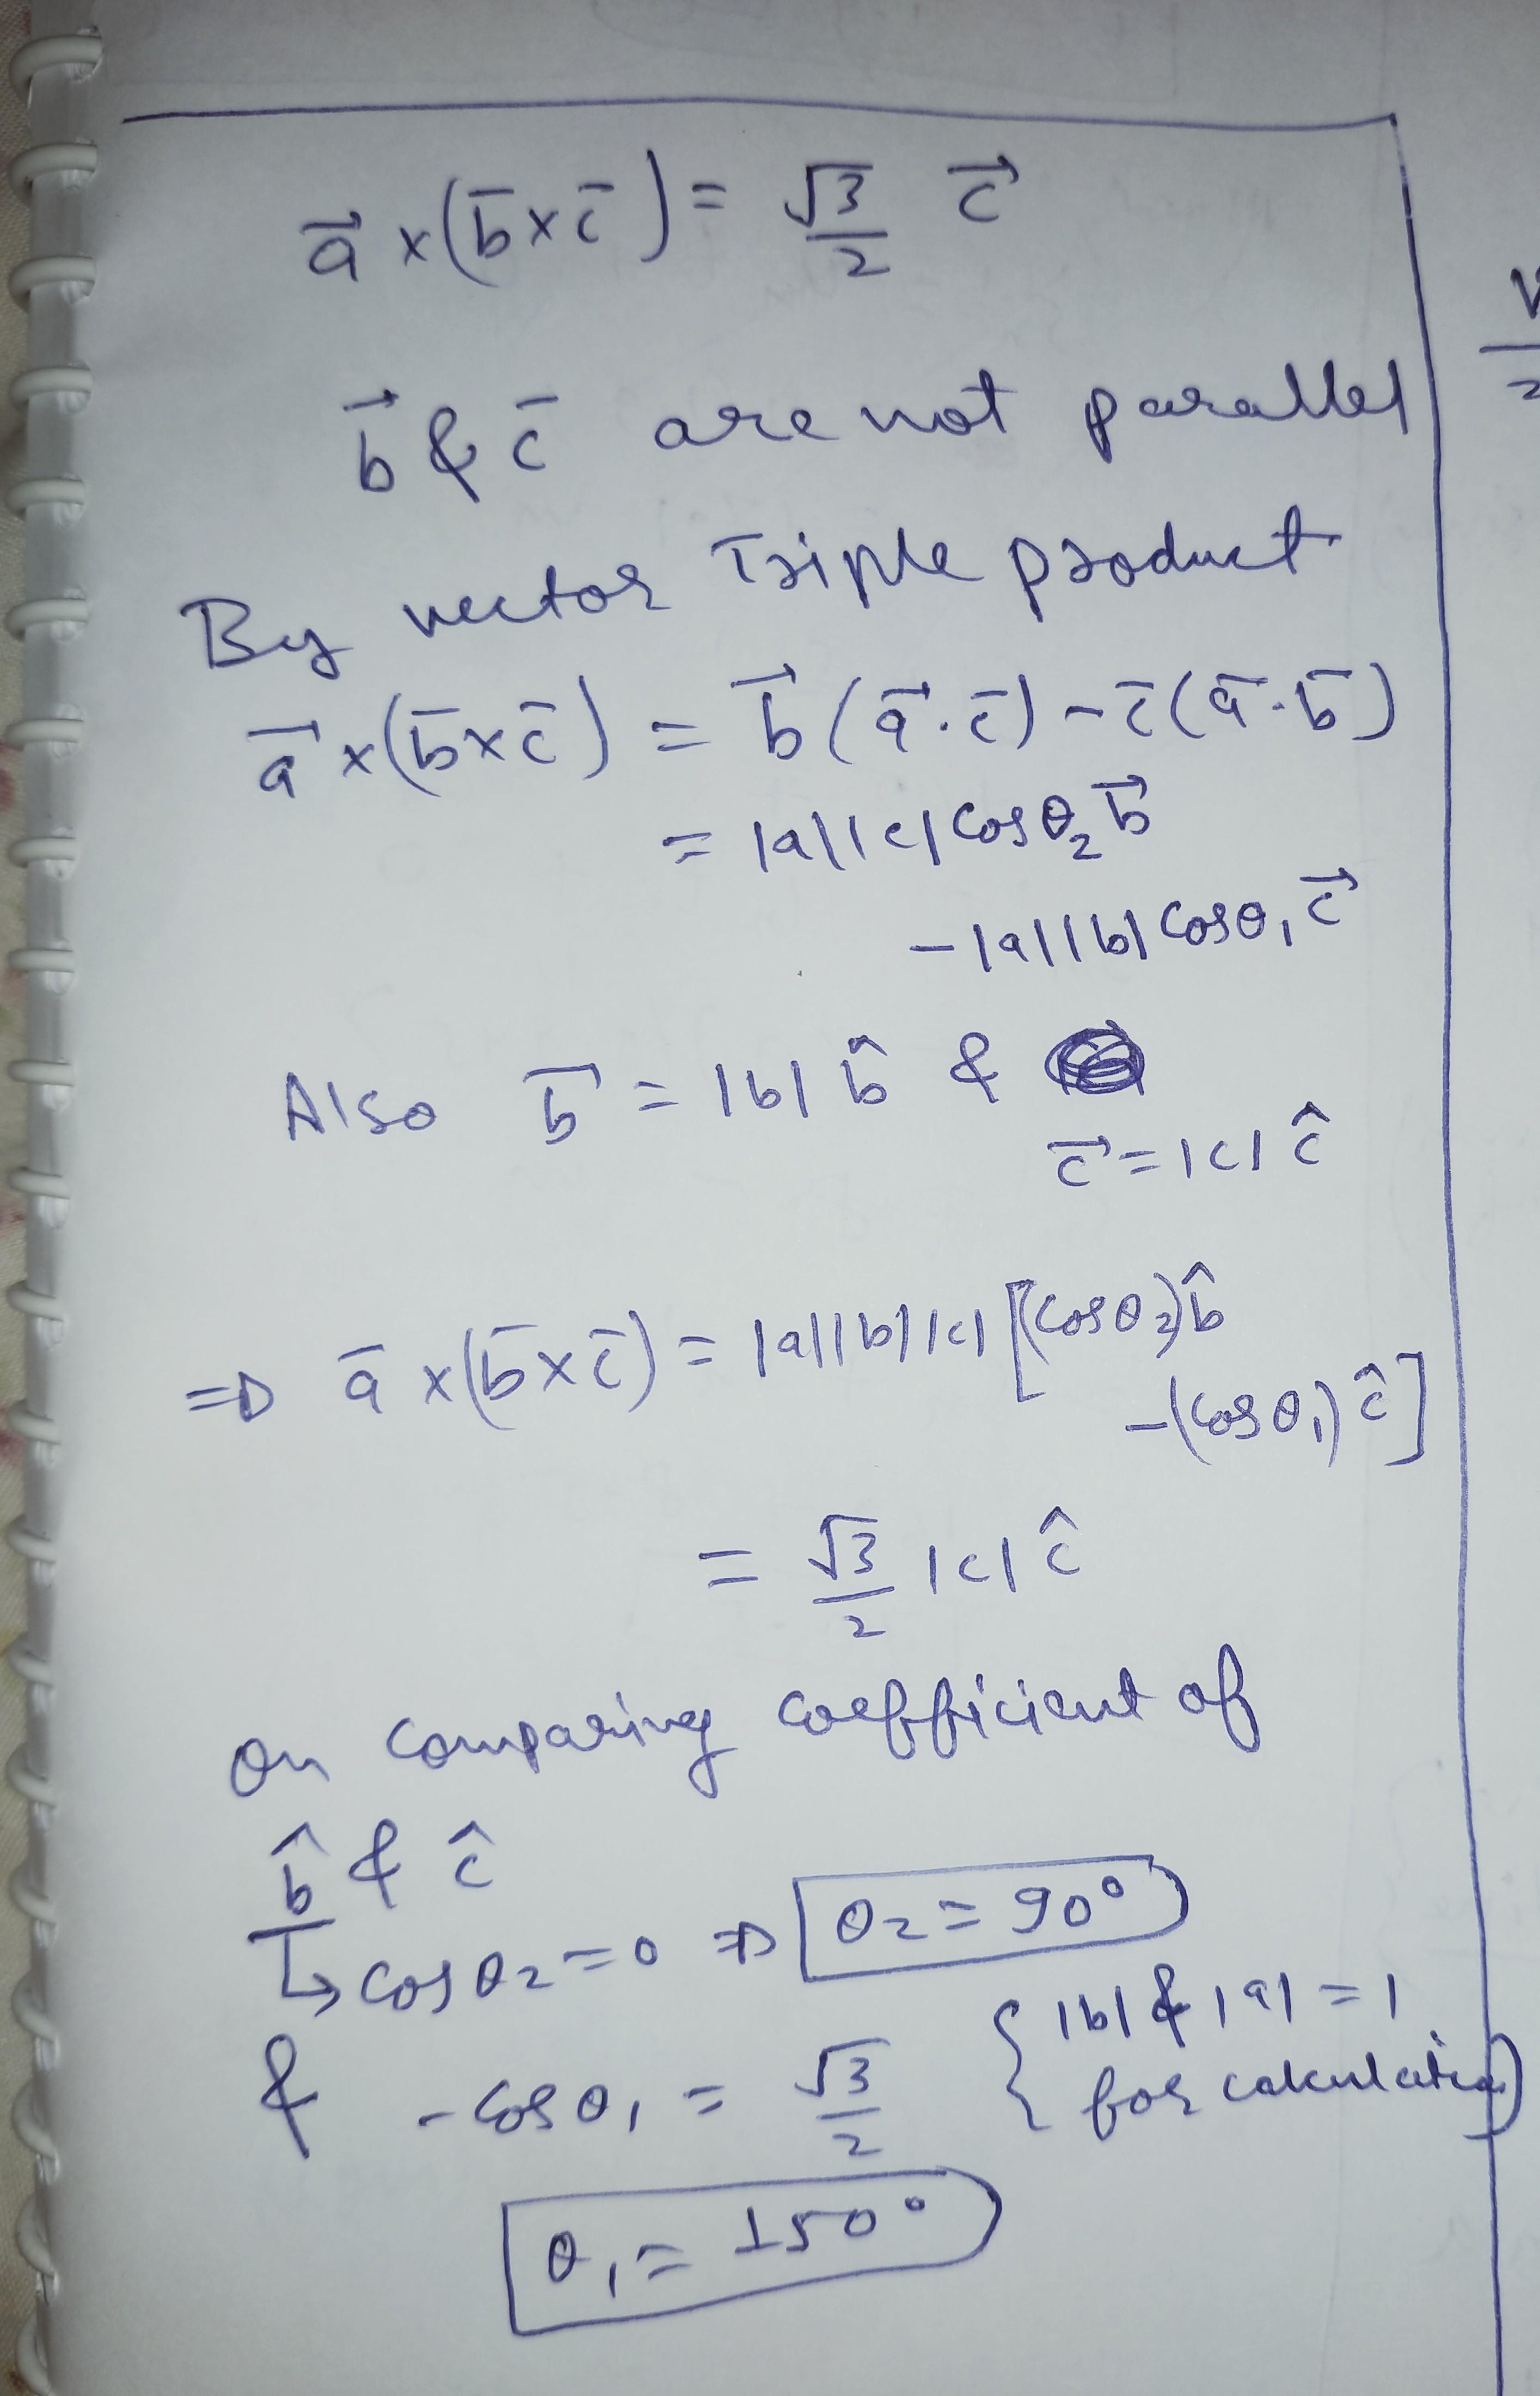 a⃗ × (b̄ × c̄) = √3/2 c⃗
b⃗ & c̄ are not parallel
By vector Triple product
a⃗ × (b̄ × c̄) = b⃗ (a⃗ · c̄) - c̄ (ā · b̄)
= |a||c| cos θ₂ b⃗
- |a||b| cos θ₁ c⃗
Also b⃗ = |b| b̂ &
c⃗ = |c| ĉ
⇒ ā × (b̄ × c̄) = |a||b||c| [(cos θ₂) b̂
- (cos θ₁) ĉ]
= √3/2 |c| ĉ
on comparing coefficient of
b̂ & ĉ
↳ cos θ₂ = 0 ⇒ θ₂ = 90°
{ |b| & |a| = 1
& - cos θ₁ = √3/2 for calculation }
θ₁ = 150°